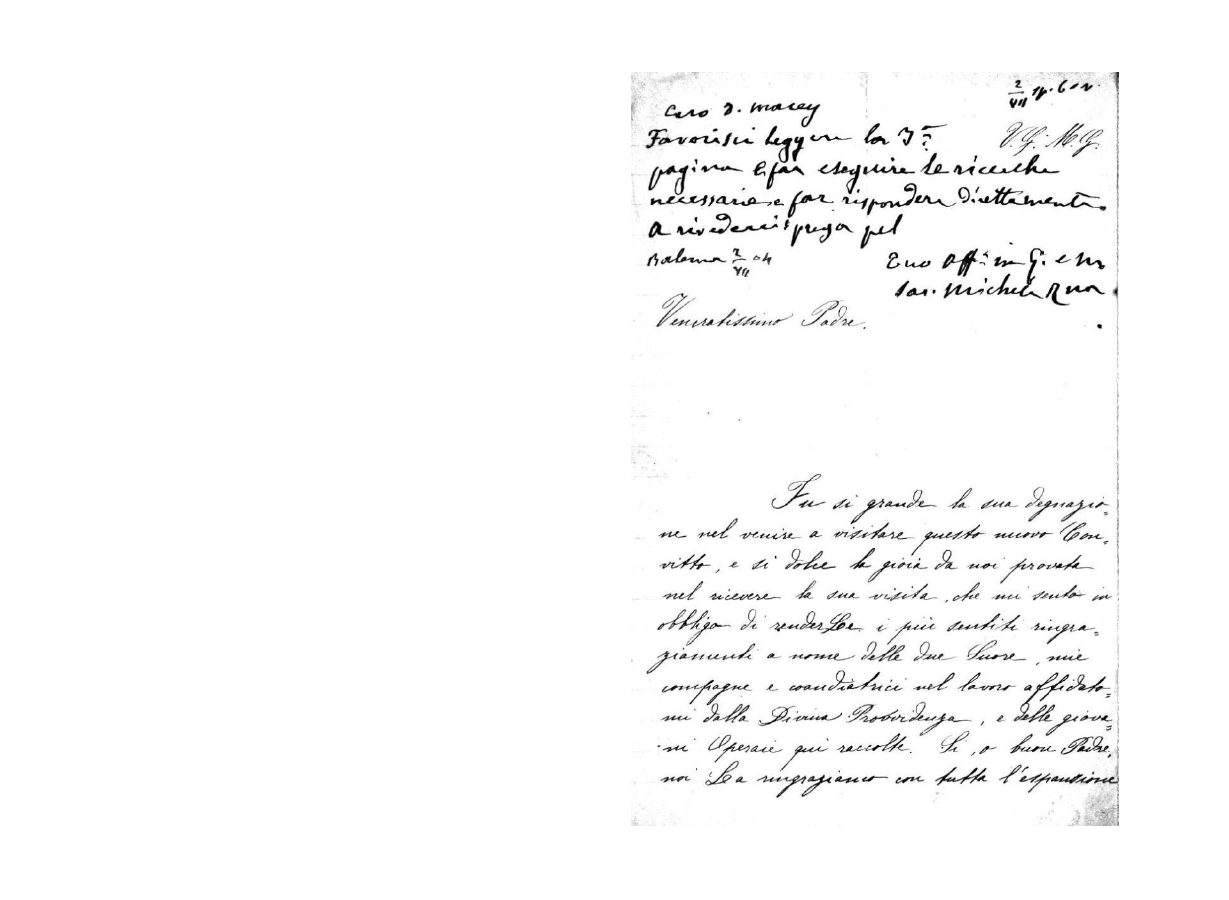 2/VII
Caro D. Macey
V. G. M. G.
Favorisci leggere la 3ª
pagina e far eseguire le ricerche
necessarie e far rispondere direttamente.
A rivederci; prega pel
Balerna 2/VII 04
Tuo aff.º in G. e M.
Sac. Michele Rua
Veneratissimo Padre.
Fu sì grande la sua degnazio=
ne nel venire a visitare questo nuovo Con=
vitto, e sì dolce la gioia da noi provata
nel ricevere la sua visita, che mi sento in
obbligo di renderLe i più sentiti ringra=
ziamenti a nome delle due Suore, mie
compagne e coadiutrici nel lavoro affidato=
mi dalla Divina Provvidenza, e delle giova=
ni Operaie qui raccolte. Sì, o buon Padre,
noi La ringraziamo con tutta l'espansione